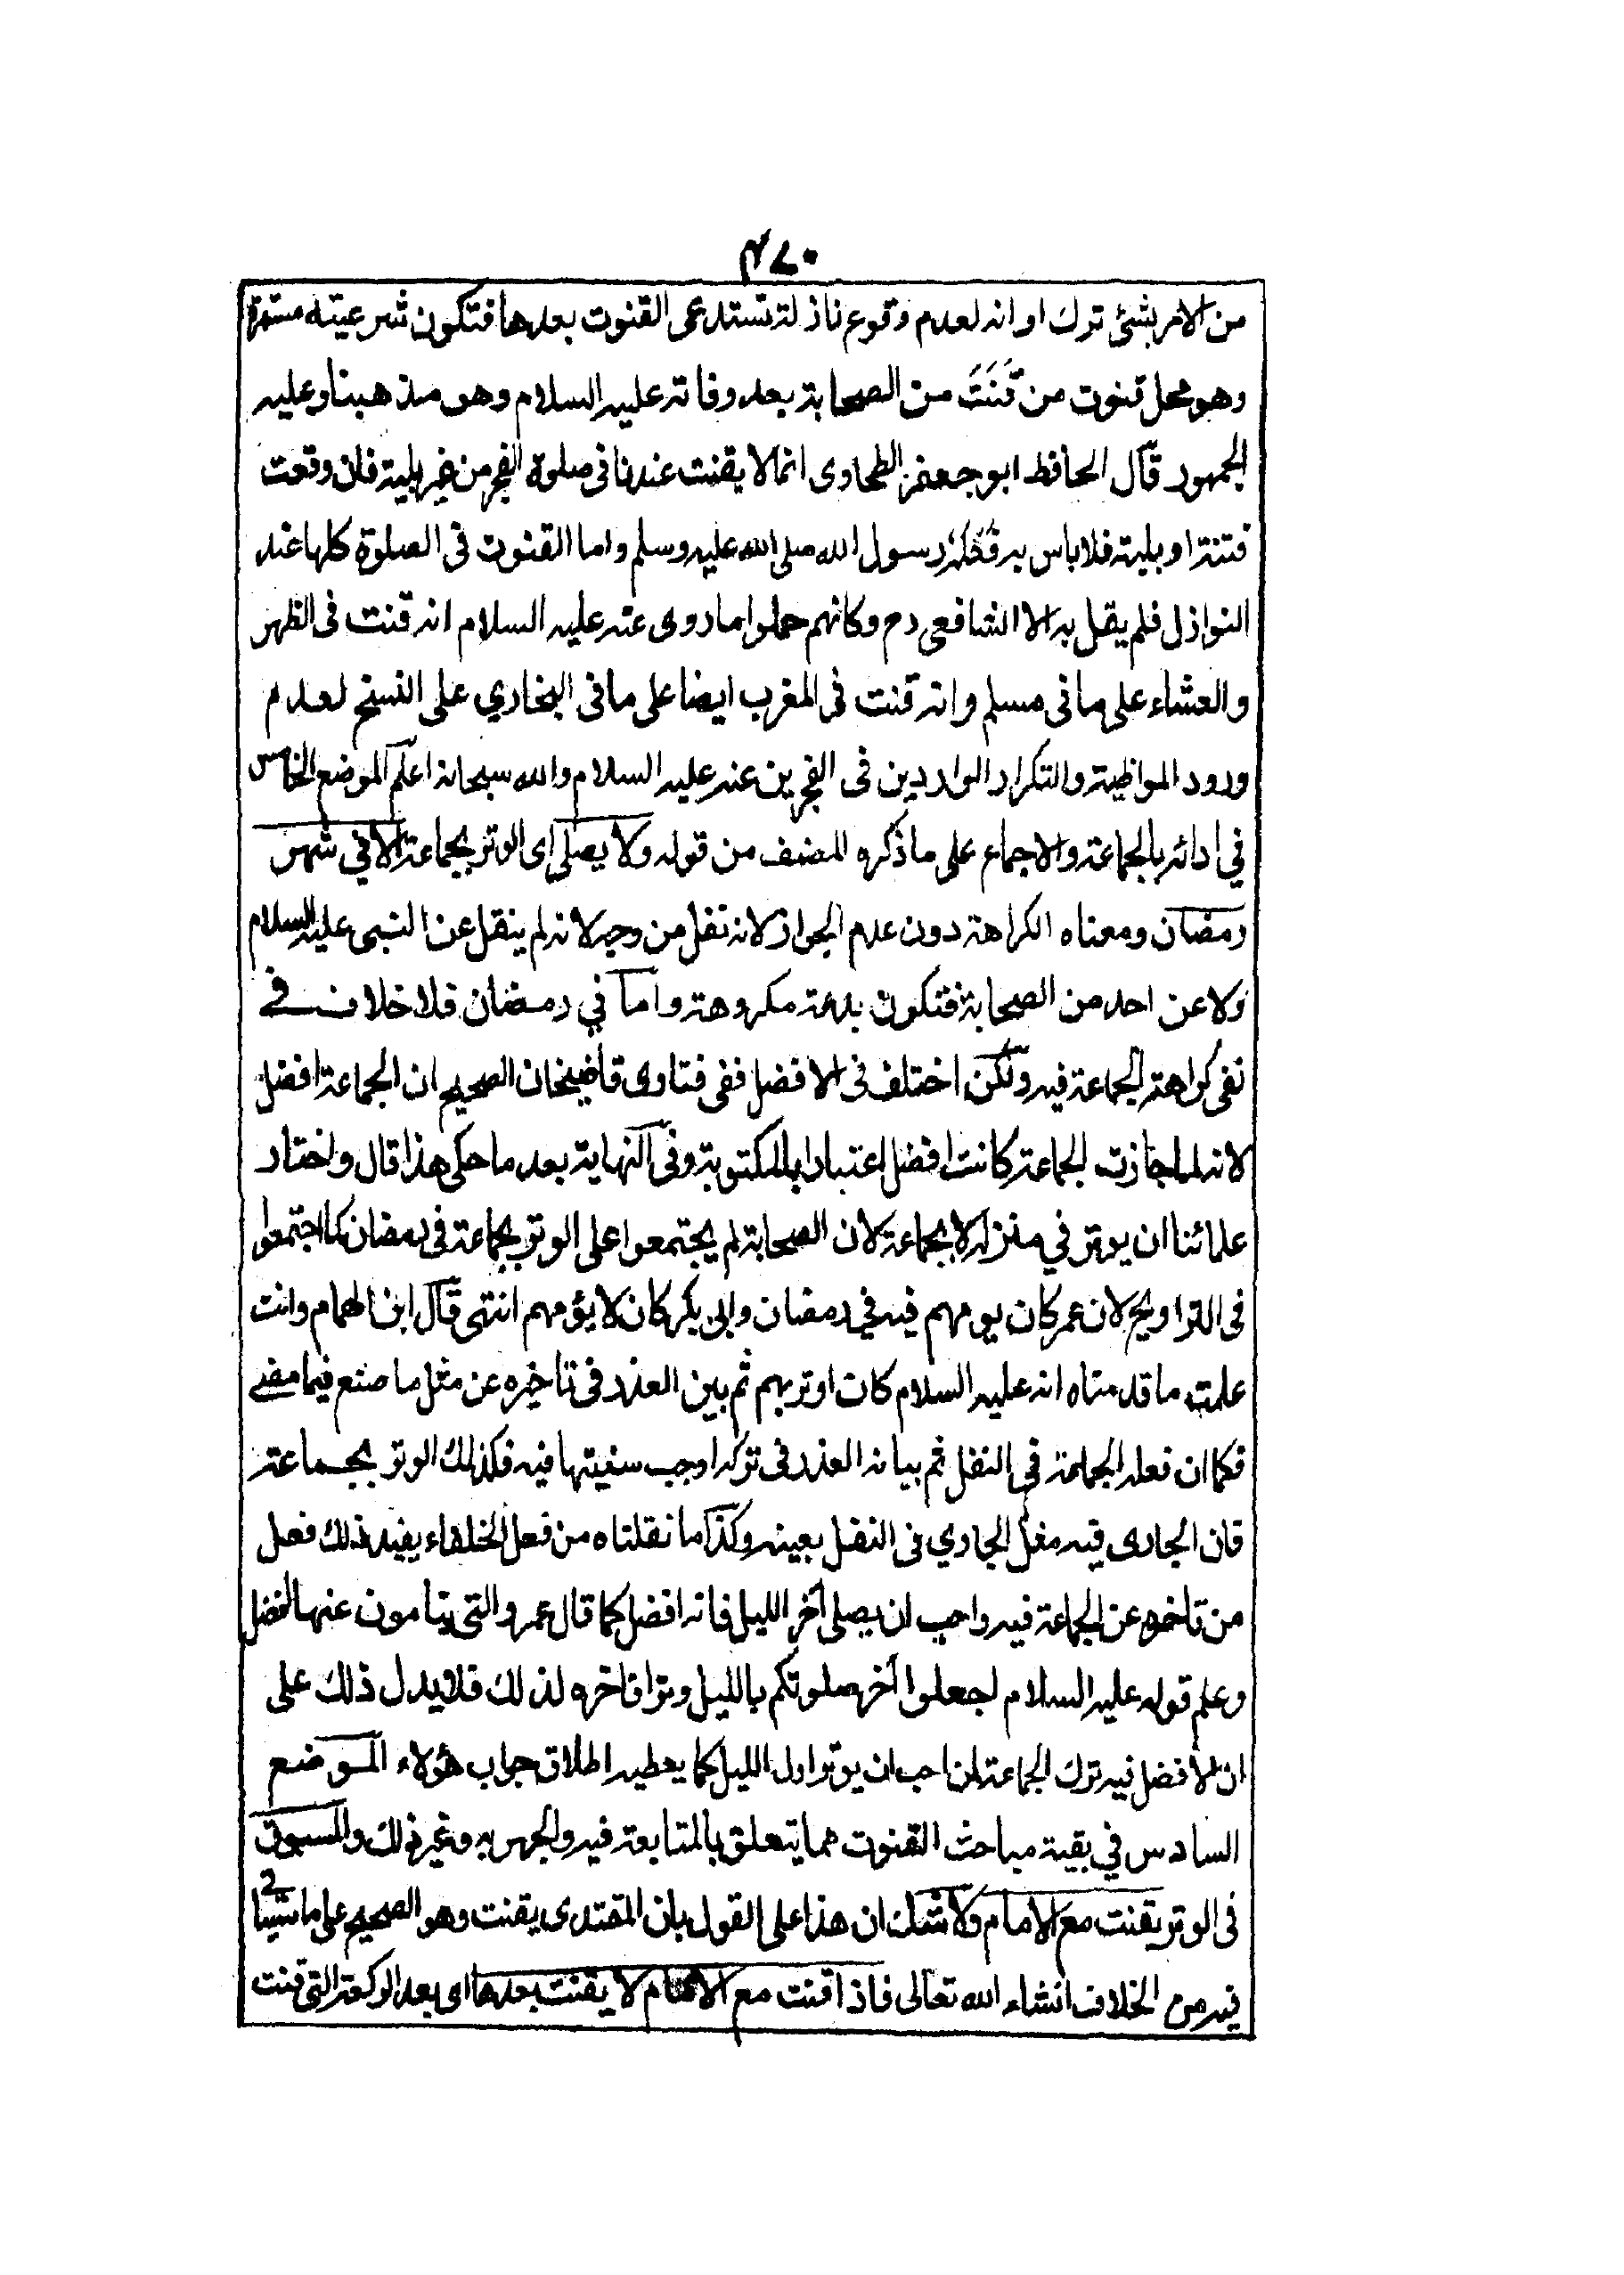 ۴۷۰
من الامر بشئ ترك او انه لعدم وقوع نازلة تستدعى القنوت بعدها فتكون شرعيته مستمرة
وهو محل قنوت من قَنَتَ من الصحابة بعد وفاته عليه السلام وهو مذهبنا وعليه
الجمهور قال الحافظ ابو جعفر الطحاوى انما لا يقنت عندنا فى صلوة الفجر من غير بلية فان وقعت
فتنة او بلية فلا باس به فعله رسول الله صلى الله عليه وسلم واما القنوت فى الصلوة كلها عند
النوازل فلم يقل به الا الشافعى رح وكانهم حملوا ما روى عنه عليه السلام انه قنت فى الظهر
والعشاء على ما فى مسلم وانه قنت فى المغرب ايضا على ما فى البخاري على النسخ لعدم
ورود المواظبة والتكرار الواردين فى الفجر ين عنه عليه السلام والله سبحانه اعلم الموضع الخامس
في ادائه بالجماعة والاجماع على ما ذكره المصنف من قوله ولا يصلى اى الوتر بجماعة الا في شهر
رمضان ومعناه الكراهة دون عدم الجواز لانه نفل من وجه لانه لم ينقل عن النبى عليه السلام
ولا عن احد من الصحابة فتكون بدعة مكروهة واما في رمضان فلا خلاف في
نفى كراهة الجماعة فيه ولكن اختلف فى الافضل ففى فتاوى قاضيخان الصحيح ان الجماعة افضل
لانه لما جازت الجماعة كانت افضل اعتبارا بالمكتوبة وفى النهاية بعد ما حكى هذا قال واختار
علمائنا ان يوتر في منزله لا بجماعة لان الصحابة لم يجتمعوا على الوتر بجماعة فى رمضان كما اجتمعوا
فى التراويح لان عمر كان يومهم فيه في رمضان وابى بكر كان لا يؤمهم انتهى قال ابن الهمام وانت
علمت ما قدمناه انه عليه السلام كان اوتر بهم ثم بين العذر فى تاخيره عن مثل ما صنع فيما مضى
فكما ان فعله الجماعة فى النفل ثم بيانه العذر فى تركه اوجب سنيتها فيه فكذلك الوتر بجماعة
فان الجارى فيه مثل الجاري فى النفل بعينه وكذا ما نقلناه من فعل الخلفاء يفيد ذلك فعل
من تاخره عن الجماعة فيه واحب ان يصلى آخر الليل فانه افضل كما قال عمر والتى ينامون عنها افضل
وعلم قوله عليه السلام اجعلوا آخر صلوتكم بالليل وترا فاخره لذلك فلا يدل ذلك على
ان الافضل فيه ترك الجماعة لمن احب ان يوتر اول الليل كما يعطيه اطلاق جواب هؤلاء الموضع
السادس في بقية مباحث القنوت مما يتعلق بالمتابعة فيه والجهر به وغير ذلك والمسبوق
فى الوتر يقنت مع الامام ولا شك ان هذا على القول بان المقتدى يقنت وهو الصحيح على ما سياتى
فيه من الخلاف انشاء الله تعالى فاذا قنت مع الامام لا يقنت بعدها اى بعد الركعة التى قنت